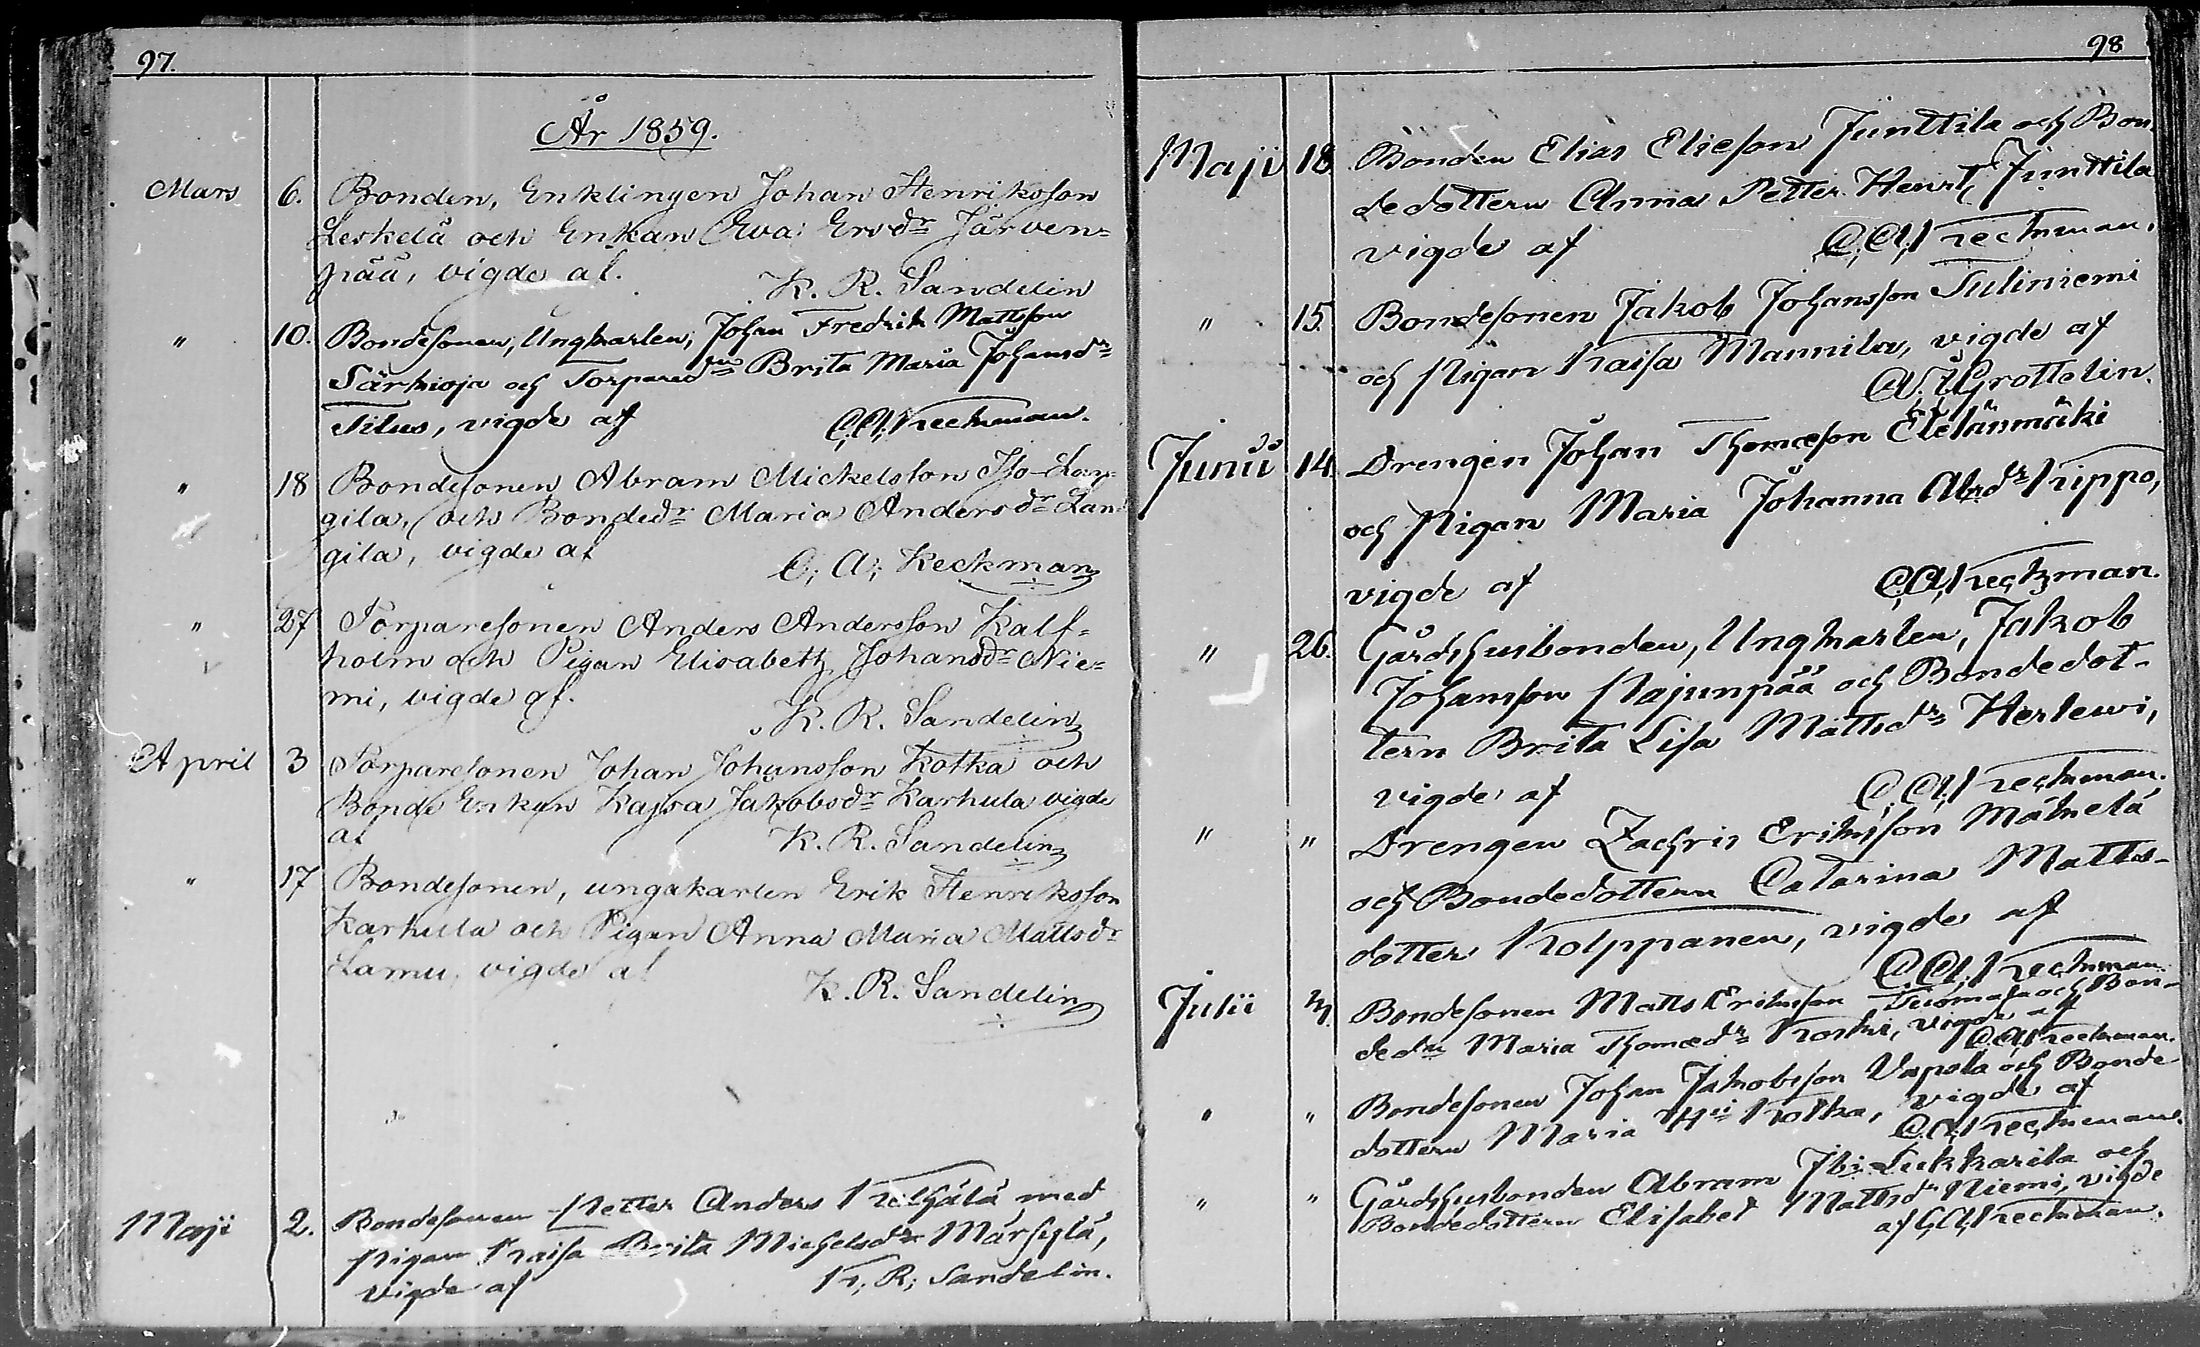 97.
År 1859.
Mars 6. Bonden, Enklingen Johan Henriksson
Leskelä och Enkan Eva Ersdr Järven=
pää, vigde af.
K. R. Sandelin
" 10. Bondesonen, Ungkarlen, Johan Fredrik Mattsson
Särkioja och Torparedrn Brita Maria Johansdr
Tilus, vigde af C; A; Keckman.
" 18 Bondesonen Abram Mickelsson Iso-Lan-
gila, och Bondedr Maria Andersdr Lan-
gila, vigde af
C; A; Keckman
" 27 Torparesonen Anders Andersson Kalf=
holm och Pigan Elisabeth Johansdr Nie=
mi, vigde af.
K. R. Sandelin
April 3 Torparesonen Johan Johansson Kotka och
Bonde Enkan Kajsa Jakobsdr Karhula vigde
af K. R. Sandelin
" 17 Bondesonen, ungakarlen Erik Henriksson
Karhula och Pigan Anna Maria Mattsdr
Lamu, vigde af
K. R. Sandelin
Maji 2. Bondesonen Petter Anders Kelhälä med
Pigan Kaisa Brita Michelsdr Märsylä,
vigde af K; R; Sandelin.
98
Maji 18 Bonden Elias Elieson Junttila och Bon-
dedottern Anna Petter Henr Junttila
vigde af C; A; Keckman.
" 15. Bondesonen Jakob Johansson Tuliniemi
och Pigan Kaisa Mannila, vigde af
Grottelin.
Junii 14. Drengen Johan Thomæson Eteläumäki
och Pigan Maria Johanna Abrdr Kippo,
vigde af C; A; Keckman.
" 26. Gårdshusbonden, Ungkarlen, Jakob
Johansson Pajunpää och Bondedot-
tern Brita Lisa Mattsdr Herlewi,
vigde af C; A; Keckman.
" " Drengen Zachris Eriksson Mäkelä
och Bondedottern Catarina Matts-
dotter Kolppanen, vigde af
C; A; Keckman.
Julii 3. Bondesonen Matts Eriksson Tuomala och Bon-
dedrn Maria Thomædr Koski, vigde af
C; A; Keckman.
" " Bondesonen Johan Jakobsson Vapola och Bonde
dottern Maria Kotka, vigde af
C; A; Keckman.
" " Gårdshusbonden Abram Lukkarila och
Bondedottern Elisabet Mattsdr Niemi, vigde
af C; A; Keckman.